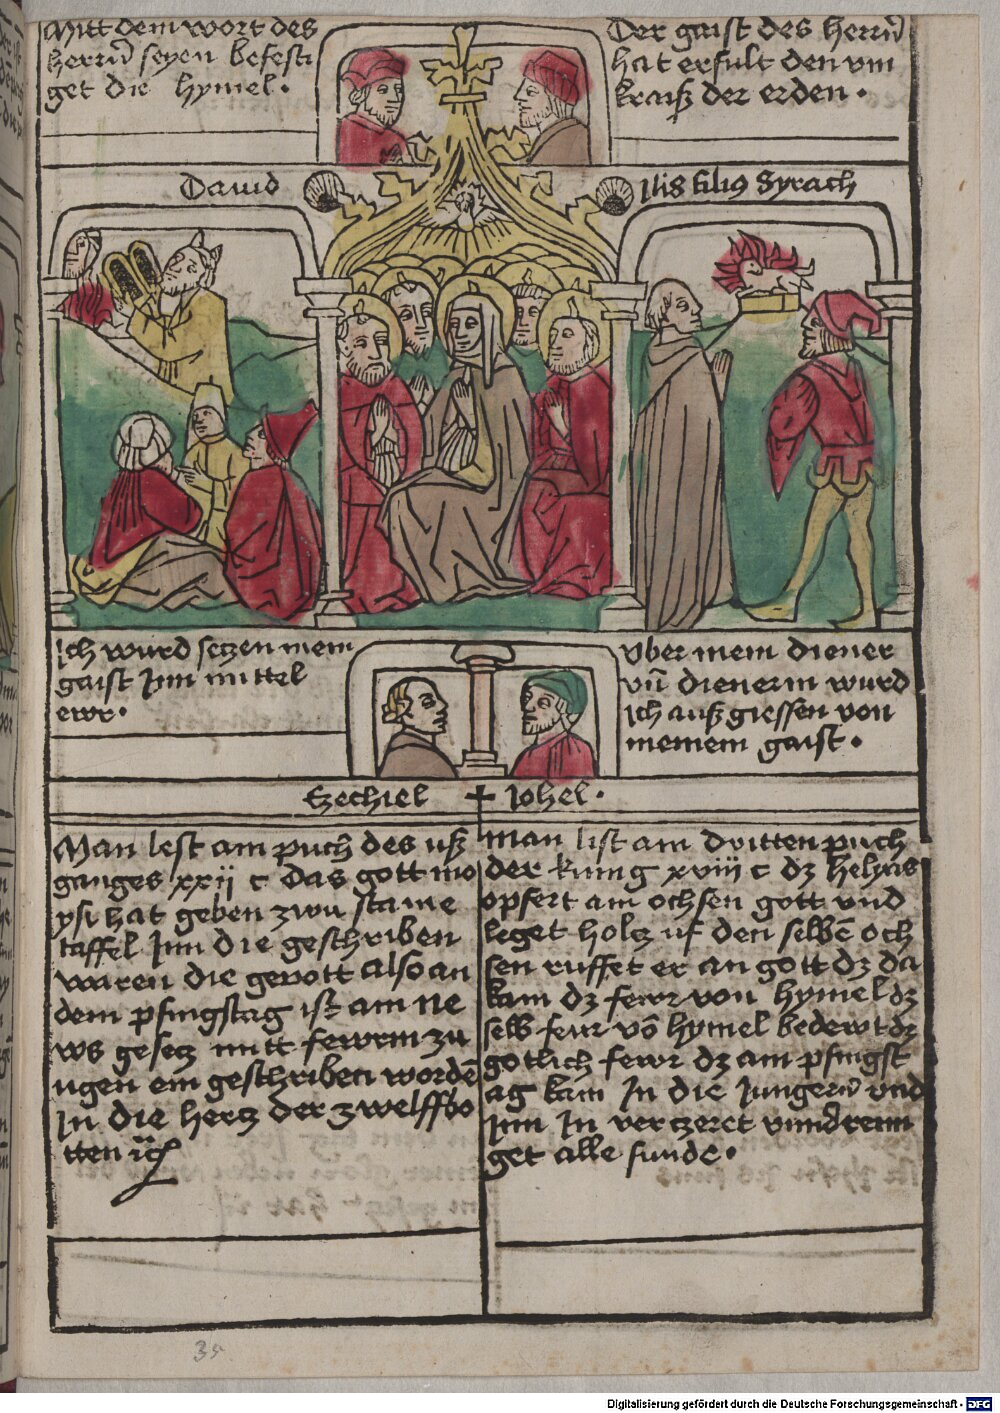 Mitt dem wort des
herrn̄ seyen befesti
get die hymel.
Der gaist des herrn̄
hat erfult den vm
kraiß der erden.
Dauid
filius Syrach
Ich wurd setzen mein
gaist Inn mittel
ewr.
Vber mein diener
vn̄ dienerin wurd
ich auß giessen von
meinem gaist.
Ezechiel
Johel.
Man lest am puch des uß
ganges xxij c das gott mo
ysi hat geben zwu staine
taffel Inn die geschriben
waren die gepott also an
dem pfingstag ist ain ne
ws gesetz mitt fewrin zu
ngen ein geschriben wordē
In die hertz der zwelffbo
tten
Man list am dritten puch
der kunig xviij c dz helyas
opfert ain ochsen gott vnd
leget holtz uf den selbē och
sen ruffet er an gott dz da
kam dz fewr von hymel dz
selb feur vō hymel bedewt dz
gotlich fewr dz am pfingst
ag kam In die Jungern̄ vnd
Inn In verczeret vnnd rein
get alle sunde.
35
Digitalisierung gefördert durch die Deutsche Forschungsgemeinschaft - DFG